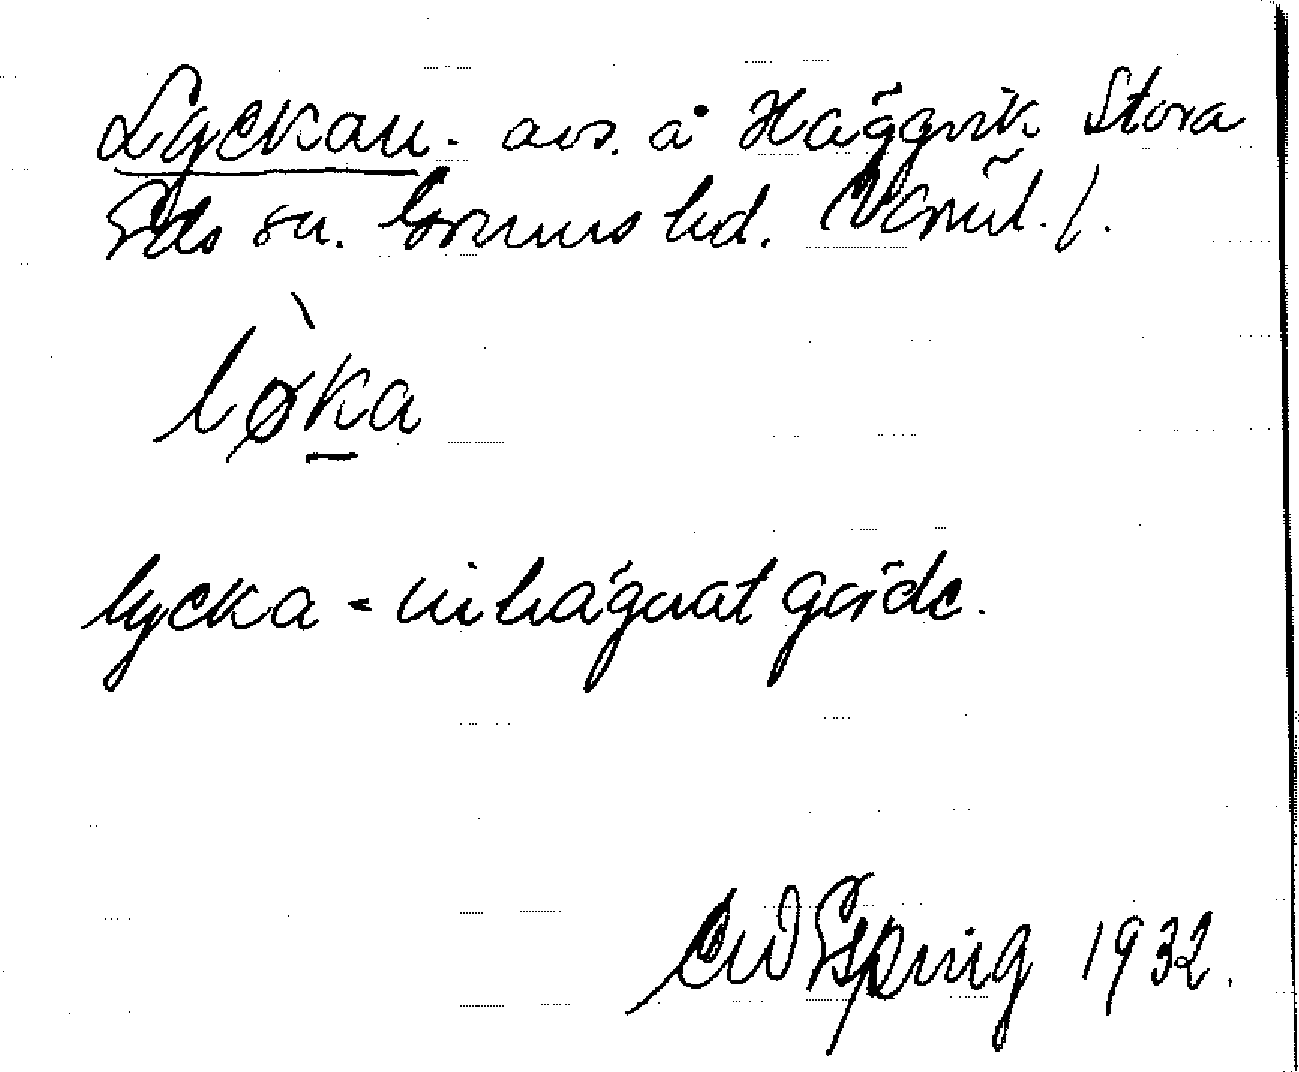 Lyckan. avs. å Häggvik Stora
Eds sn. Grums hd. Värml.
lø̀ka
lycka - inhägnat gärde.
Espving 1932.